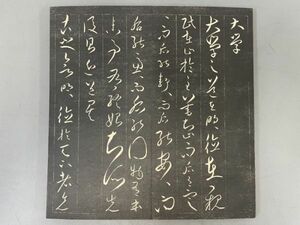 大学
大学之道在明々德在親
民在止於至善知止而后有定
而后能静々而后能安々而
后能慮々而后能得物有本
末事有終始知所先
後則近道矣
古之欲明々德於天下者先